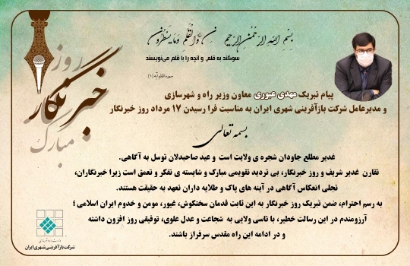 بسم الله الرحمن الرحیم ن والقلم و ما یسطرون
سوگند به قلم و آنچه را با قلم می‌نویسند
روز
خبرنگار
مبارک
پیام تبریک مهدی عبوری معاون وزیر راه و شهرسازی
و مدیرعامل شرکت بازآفرینی شهری ایران به مناسبت فرا رسیدن ۱۷ مرداد روز خبرنگار
بسمه تعالی
غدیر مطلع جاودان شجره ی ولایت است و عید صاحبدلان توسل به آگاهی.
تقارن غدیر شریف و روز خبرنگار، بی تردید تقویمی مبارک و شایسته ی تفکر و تعمق است زیرا خبرنگاران،
تجلی انعکاس آگاهی در آینه های پاک و طلایه داران تعهد به حقیقت هستند.
به رسم احترام، ضمن تبریک روز خبرنگار به این ثابت قدمان سختکوش، غیور، مومن و خدوم ایران اسلامی ؛
آرزومندم در این رسالت خطیر، با تاسی ولایی به شجاعت و عدل علوی، توفیقی روز افزون داشته
و در ادامه این راه مقدس سرفراز باشند.
شرکت بازآفرینی شهری ایران